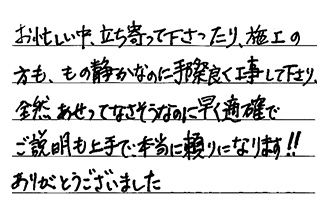 お忙しい中、立ち寄って下さったり、施工の
方も、もの静かなのに手際良く工事して下さり、
全然あせってなさそうなのに早く適確で
ご説明も上手で、本当に頼りになります!!
ありがとうございました